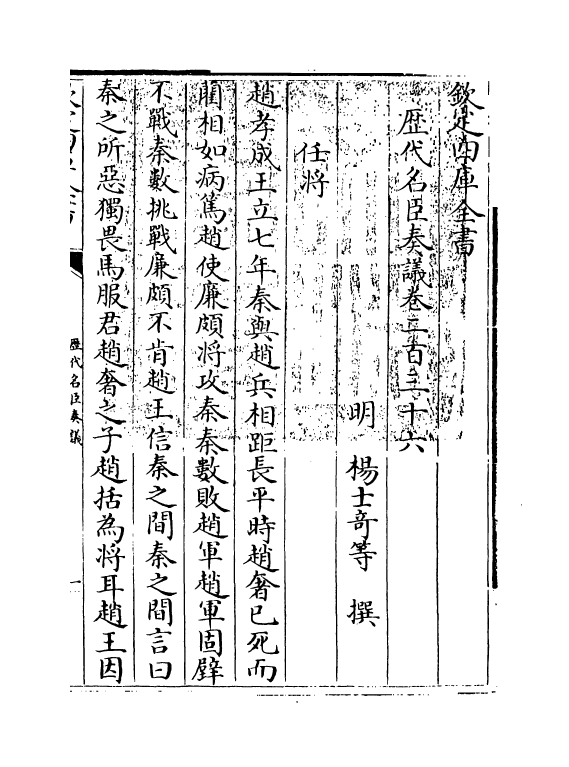 欽定四庫全書
歴代名臣奏議卷二百三十六
明　楊士竒等　撰
任将
趙孝成王立七年秦與趙兵相距長平時趙奢已死而
藺相如病篤趙使廉頗将攻秦秦數敗趙軍趙軍固壁
不戰秦數挑戰廉頗不肯趙王信秦之間秦之間言曰
秦之所惡獨畏馬服君趙奢之子趙括為将耳趙王因
歴代名臣奏議
一